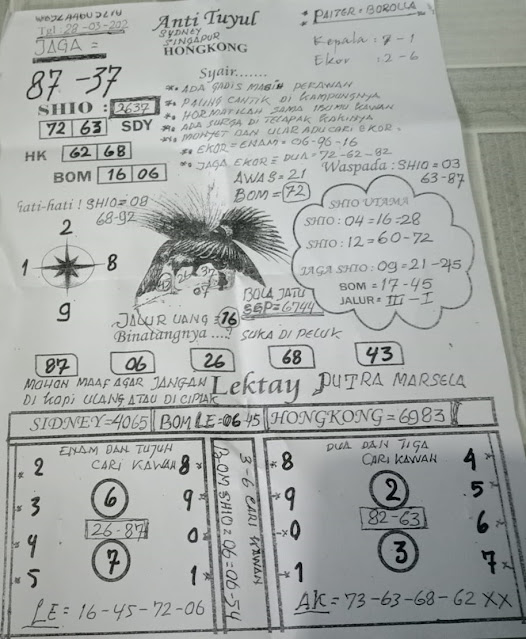 Tgl : 28-03-202
JAGA =
87 -37
Anti Tuyul
SYDNEY
SINGAPUR
HONGKONG
* PAITER = BOROLLA *
Kepala : 7 - 1
Ekor : 2 - 6
Syair.......
ADA GADIS MASIH PERAWAN
PALING CANTIK DI KAMPUNGNYA
HORMATILAH SAMA IBUMU KAWAN
ADA SURGA DI TELAPAK KAKINYA
MONYET DAN ULAR ADU CARI EKOR.
EKOR = ENAM = 06-96-16
JAGA EKOR = DUA = 72-62-82
SHIO : 2637
72 63 SDY
HK 62 68
BOM 16 06
AWAS = 21
BOM = 72
Waspada : SHIO = 03
63-87
Hati-hati ! SHIO = 08
68-92
2
1 8
9
SHIO UTAMA
SHIO : 04 = 16 = 28
SHIO : 12 = 60-72
JAGA SHIO : 09 = 21-45
BOM = 17-45
JALUR = III - I
BOLA JATU
SGP = 6744
JALUR UANG = 16
Binatangnya ....? SUKA DI PELUK
87 06 26 68 43
MOHON MAAF AGAR JANGAN
DI KOPI ULANG ATAU DI CIPLAK
Lektay PUTRA MARSELA
SIDNEY=4065 BOM LE = 06 45 HONGKONG=6983
ENAM DAN TUJUH
CARI KAWAN
* 2 8 *
* 3 6 9 *
26-87
* 4 0 *
* 5 7 1 *
LE = 16-45-72-06
3-6 CARI KAWAN
BOM SHIO = 06 = 06-54
DUA DAN TIGA
CARI KAWAN
* 8 4 *
* 9 2 5 *
82-63
* 0 6 *
* 1 3 7 *
AK = 73-63-68-62 XX